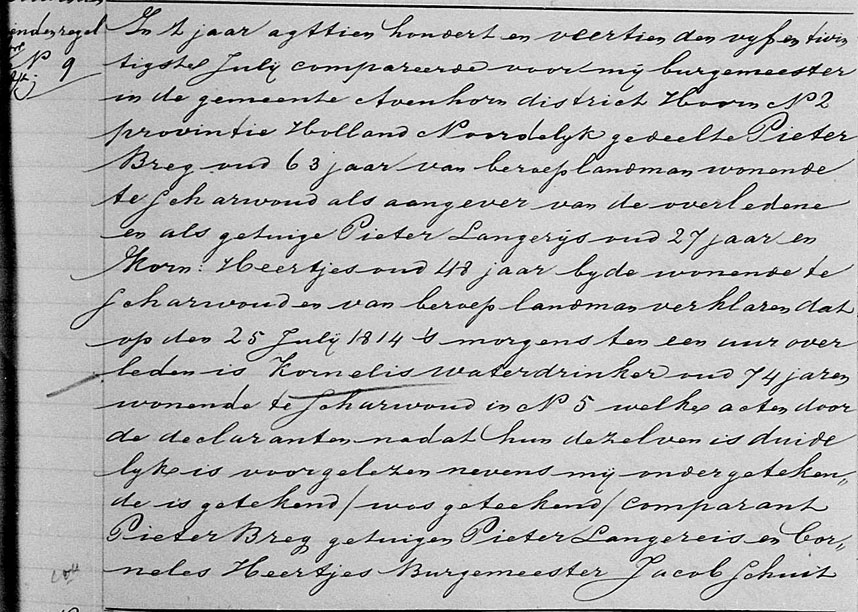 indezregel
N 9
In 't jaar agttien hondert en veertien den vyf en twin
tigste July compareerde voor my burgemeester
in de gemeente Avenhorn district Hoorn N 2
provintie Holland Noordelyk gedeelte Pieter
Breg oud 63 jaar van beroep landman wonende
te Scharwoud als aangever van de overledene
en als getuige Pieter Langerijs oud 27 jaar en
Korn: Heertjes oud 48 jaar byde wonende te
Scharwoud en van beroep landman verklaren dat
op den 25 July 1814 's morgens ten een uur over
leden is Kornelis Waterdrinker oud 74 jaren
wonende te Scharwoud in N 5 welke acten door
de declaranten nadat hun dezelven is duide
lyk is voorgelezen nevens my ondergeteken„
de is getekend / was geteekend / comparant
Pieter Breg getuigen Pieter Langereis en Cor„
neles Heertjes Burgemeester Jacob Schuit